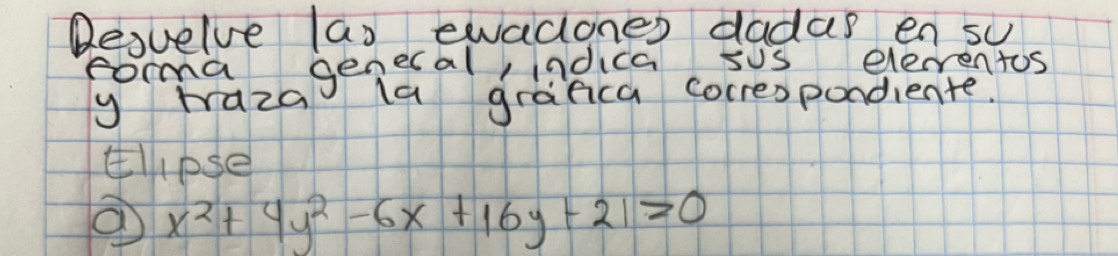 Resuelve las ecuaciones dadas en su
forma general, indica sus elementos
y traza la gráfica correspondiente.
Elipse
a) x² + 4y² - 6x + 16y + 21 = 0